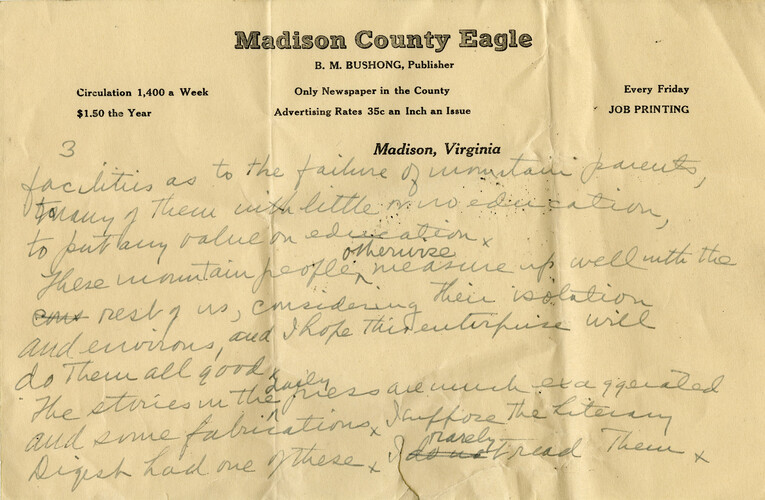 Madison County Eagle
B. M. BUSHONG, Publisher
Circulation 1,400 a Week
Only Newspaper in the County
Every Friday
$1.50 the Year
Advertising Rates 35c an Inch an Issue
JOB PRINTING
3
Madison, Virginia
facilities as to the failure of mountain parents,
many of them with little or no education,
to put any value on education x
otherwise
These mountain people, ^ measure up well with the
cons rest of us, considering their isolation
and environs, and I hope this enterprise will
do them all good x
daily
The stories in the ^ press are much exaggerated
and some fabrications x I suppose the Literary
rarely
Digest had one of these x I do not read them x